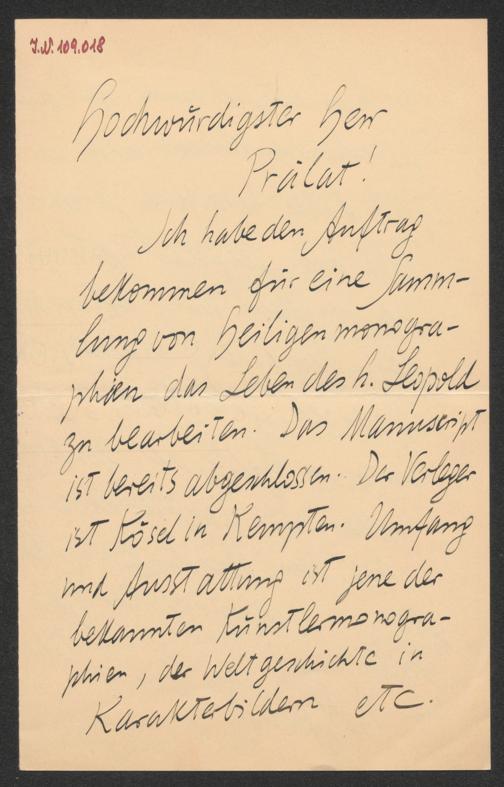 J.N. 109.018
Hochwürdigster Herr
Prälat!
Ich habe den Auftrag
bekommen für eine Samm-
lung von Heiligenmonogra-
phien das Leben des h. Leopold
zu bearbeiten. Das Manuscript
ist bereits abgeschlossen. Der Verleger
ist Kösel in Kempten. Umfang
und Ausstattung ist jene der
bekannten Künstlermonogra-
phien, der Weltgeschichte in
Karakterbildern etc.